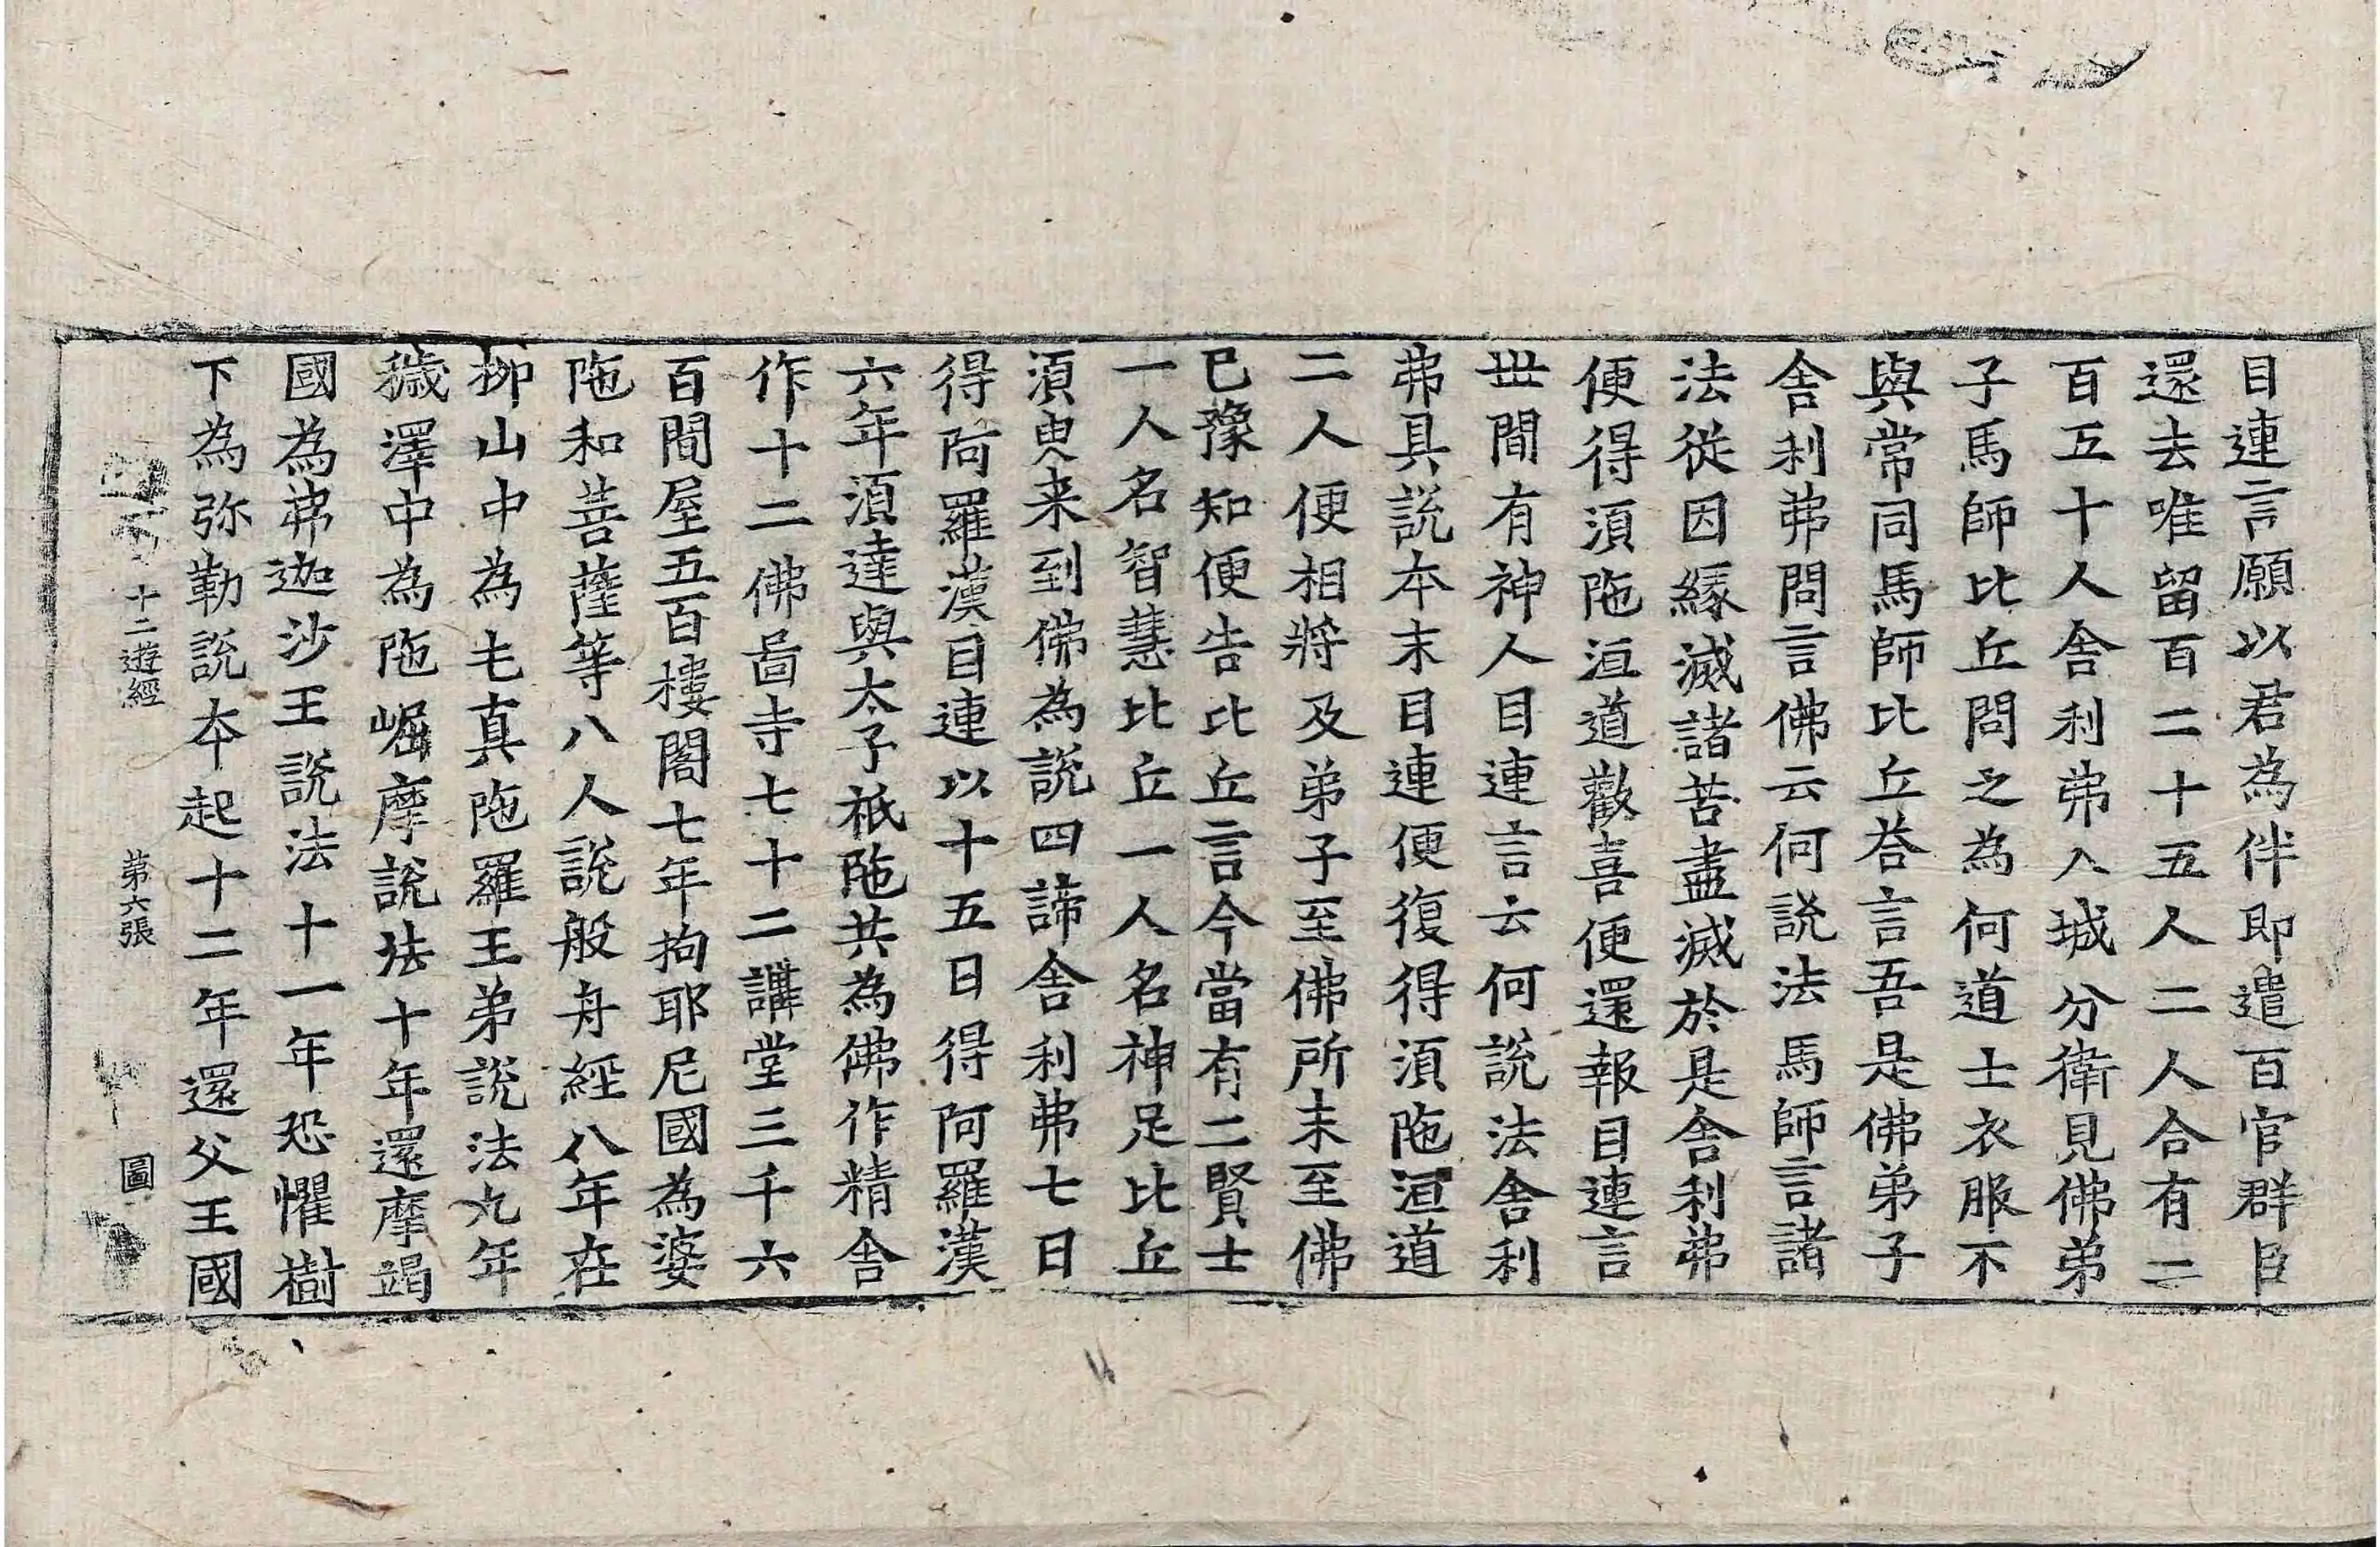 目連言願以君為伴即遣百官群臣
還去唯留百二十五人二人合有二
百五十人舎利弗入城分衛見佛弟
子馬師比丘問之為何道士衣服不
與常同馬師比丘荅言吾是佛弟子
舎利弗問言佛云何說法馬師言諸
法從因緣滅諸苦盡滅於是舎利弗
便得湏陁洹道歡喜便還報目連言
丗間有神人目連言云何說法舎利
弗具說夲末目連便復得湏陁洹道
二人便相將及弟子至佛所未至佛
已豫知便告比丘言今當有二賢士
一人名智慧比丘一人名神足比丘
湏臾来到佛為說四諦舎利弗七日
得阿羅漢目連以十五日得阿羅漢
六年湏達與太子祇陁共為佛作精舎
作十二佛啚寺七十二講堂三千六
百間屋五百樓閣七年拘耶尼國為婆
陁和菩薩等八人說般舟經八年在
栁山中為屯真陁羅王弟說法九年
穢澤中為陁崛摩說法十年還摩竭
國為弗迦沙王說法十一年恐懼樹
下為弥勒說夲起十二年還父王國
十二遊經 第六張 圖